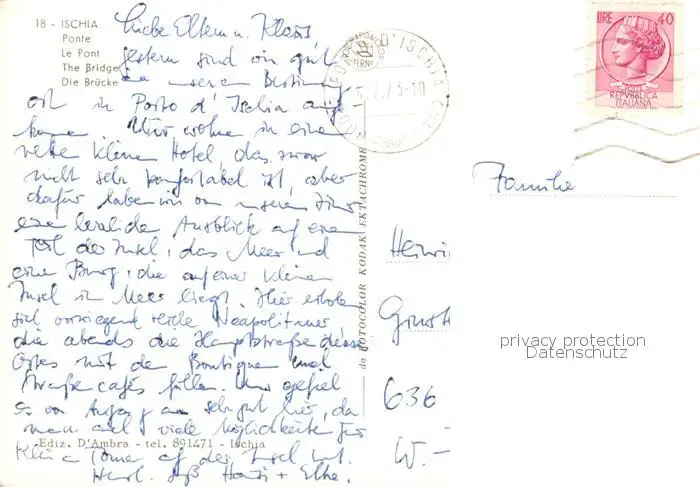 18 - ISCHIA
Ponte
Le Pont
The Bridge
Die Brücke
Liebe Eltern u. Klaus
gestern sind wir gut
in unserem Bestimmungs-
ort in Porto d'Ischia ange-
kommen. Wir wohnen in einem
netten kleinen Hotel, das zwar
nicht sehr komfortabel ist, aber
dafür haben wir von unserem Zimmer
eine herrliche Ausblick auf einen
Teil der Insel, das Meer und
eine Burg, die auf einer kleinen
Insel im Meer liegt. Hier erholen
sich vorwiegend reiche Neapolitaner
die abends die Hauptstraße dieses
Ortes mit den Boutiquen und
Straßencafés füllen. Uns gefiel
es von Anfang an sehr gut hier, da
man auch viele Möglichkeiten für
kleine Touren auf der Insel hat.
Herzl. Grüße Hansi + Elke.
Ediz. D'Ambra - tel. 891471 - Ischia
FOTOCOLOR KODAK EKTACHROME
D'ISCHIA
LIRE 40
REPVBBLICA
ITALIANA
Familie
Heinri
636
W.-
privacy protection
Datenschutz